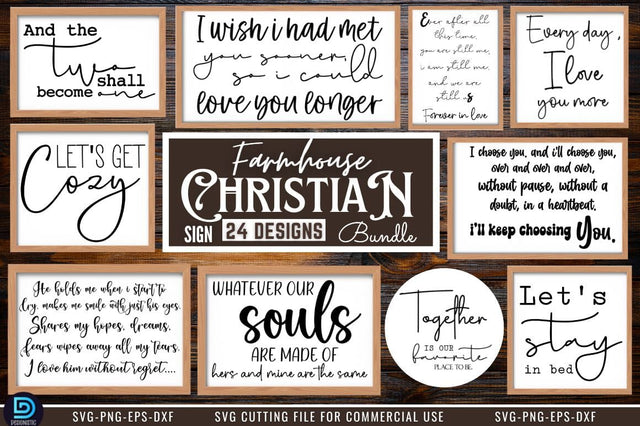 And the
two
shall
become one
I wish i had met
you sooner,
so i could
love you longer
Ever after all
this time,
you are still me,
i am still me,
and we are
still -s
Forever in love
Every day,
I love
you more
LET'S GET
Cozy
Farmhouse
CHRISTIAN
SIGN 24 DESIGNS Bundle
I choose you, and i'll choose you,
over and over and over,
without pause, without a
doubt, in a heartbeat.
i'll keep choosing You.
He holds me when i start to
Cry, makes me smile with just his eyes.
Shares my hopes, dreams,
fears wipes away all my tears.
I love him without regret....
WHATEVER OUR
souls
ARE MADE OF
hers and mine are the same
Together
IS OUR
favorite
PLACE TO BE.
Let's
stay
in bed
DESIGNISTIC
SVG-PNG-EPS-DXF
SVG CUTTING FILE FOR COMMERCIAL USE
SVG-PNG-EPS-DXF